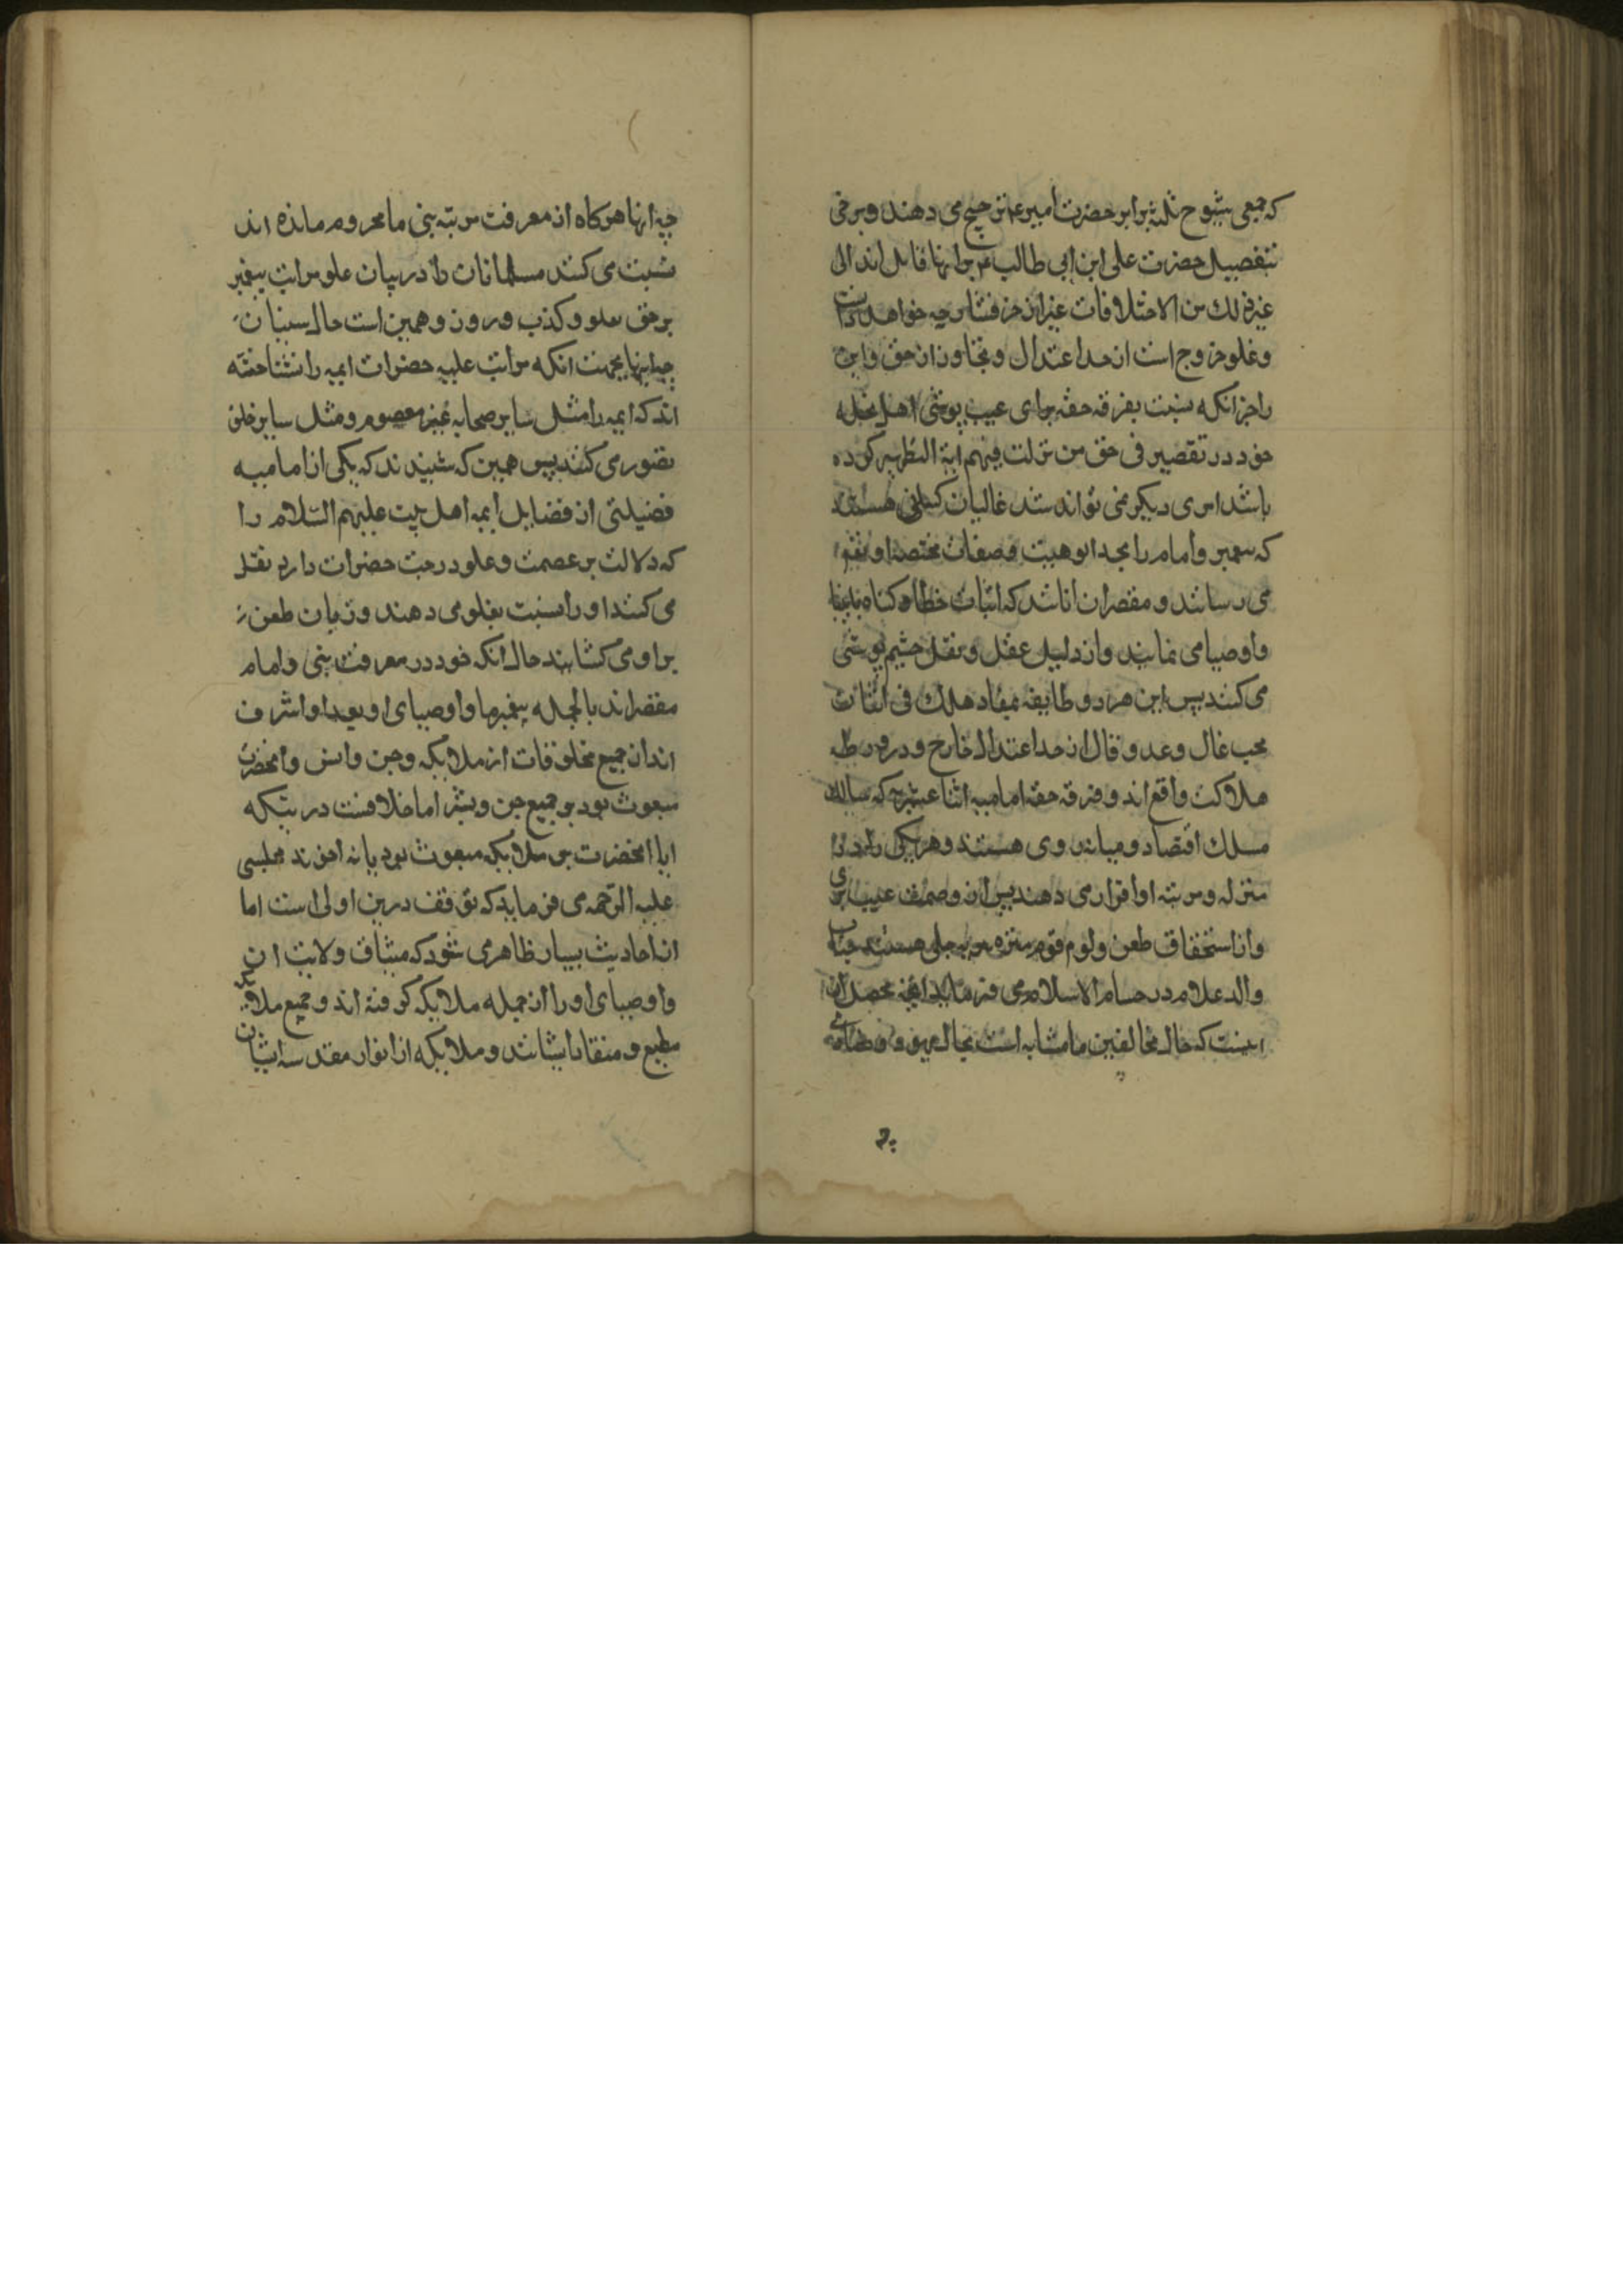 که جمعی شیوخ ثلثه را بر حضرت امیر ع ترجیح می دهند و برخی
بتفضیل حضرت علی ابن ابی طالب ع بر انها قایل اند الی
غیر ذلك من الاختلافات غیر از خرفشار چه خواهد
وغلو خروج است از حد اعتدال و تجاوز از حق و این
را جز انکه نسبت بفرقه حقه برای عیب پوشی اهل نحله
خود در تقصیر فی حق من نزلت فیهم ایة التطهیر کرده
باشد امری دیکر نمی تواند شد غالیان کسانی هستند
که پیغمبر و امام را بحد الوهیت و صفات مختصه او تعم
می رسانند و مقصران انانند که اثبات خطا و کناه بانبیا
و اوصیا می نمایند و از دلیل عقل و نقل چشم پوشی
می کنند پس این هر دو طایفه بمفاد هلك فی اثنان
محب غال و عدو قال از حد اعتدال خارج و در ورطه
هلاکت واقع اند و فرقه حقه امامیه اثنا عشریه که سالك
مسلك اقتصاد و میانه روی هستند و هر یکی را در
منزله و مرتبه او قرار می دهند پس از وصمت عیب بری
و از استحقاق طعن و لوم قوم منزه و جناب
والد علام در حسام الاسلام می فرماید انچه محصل ان
اینست که حال مخالفین ما مشابه است بحال یهود و نصاری
چه انها هرکاه از معرفت مرتبه نبی ما محروم مانده اند
نسبت می کنند مسلمانان را در بیان علو مراتب پیغمبر
بر حق بغلو و کذب و زور و همین است حال سنیان
چه اینها بجهت انکه مراتب علیه حضرات ایمه را نشناخته
اند که ایمه را مثل سایر صحابه غیر معصوم و مثل سایر خلق
تصور می کنند پس همین که شنیدند که یکی از امامیه
فضیلتی از فضایل ایمه اهل بیت علیهم السّلام را
که دلالت بر عصمت و علو درجت حضرات دارد نقل
می کند او را نسبت بغلو می دهند و زبان طعن
بر او می کشایند حال انکه خود در معرفت نبی و امام
مقصر اند بالجمله پیغمبر ما و اوصیای او بعد او اشرف
اند از جمیع مخلوقات از ملایکه و جن و انس و انحضرت
مبعوث بود بر جمیع جن و بشر اما خلاف نیست در بتکه
ایا انحضرت بر ملایکه مبعوث بود یا نه اخوند مجلسی
علیه الرّحمه می فرماید که توقف درین اولی است اما
از احادیث بسیار ظاهر می شود که میثاق ولایت ان
و اوصیای او را از جمله ملایکه کرفته اند و جمیع ملایکه
مطیع و منقاد ایشانند و ملایکه از انوار مقدسه ایشان